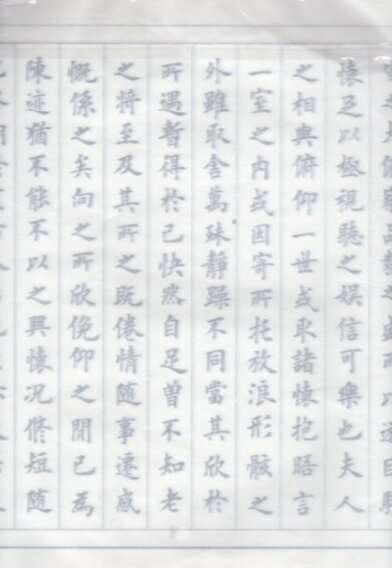 懷足以極視聽之娛信可樂也夫人
之相與俯仰一世或取諸懷抱晤言
一室之內或因寄所托放浪形骸之
外雖取舍萬殊靜躁不同當其欣於
所遇暫得於己快然自足曾不知老
之將至及其所之既倦情隨事遷感
慨係之矣向之所欣俛仰之閒已為
陳迹猶不能不以之興懷況脩短隨